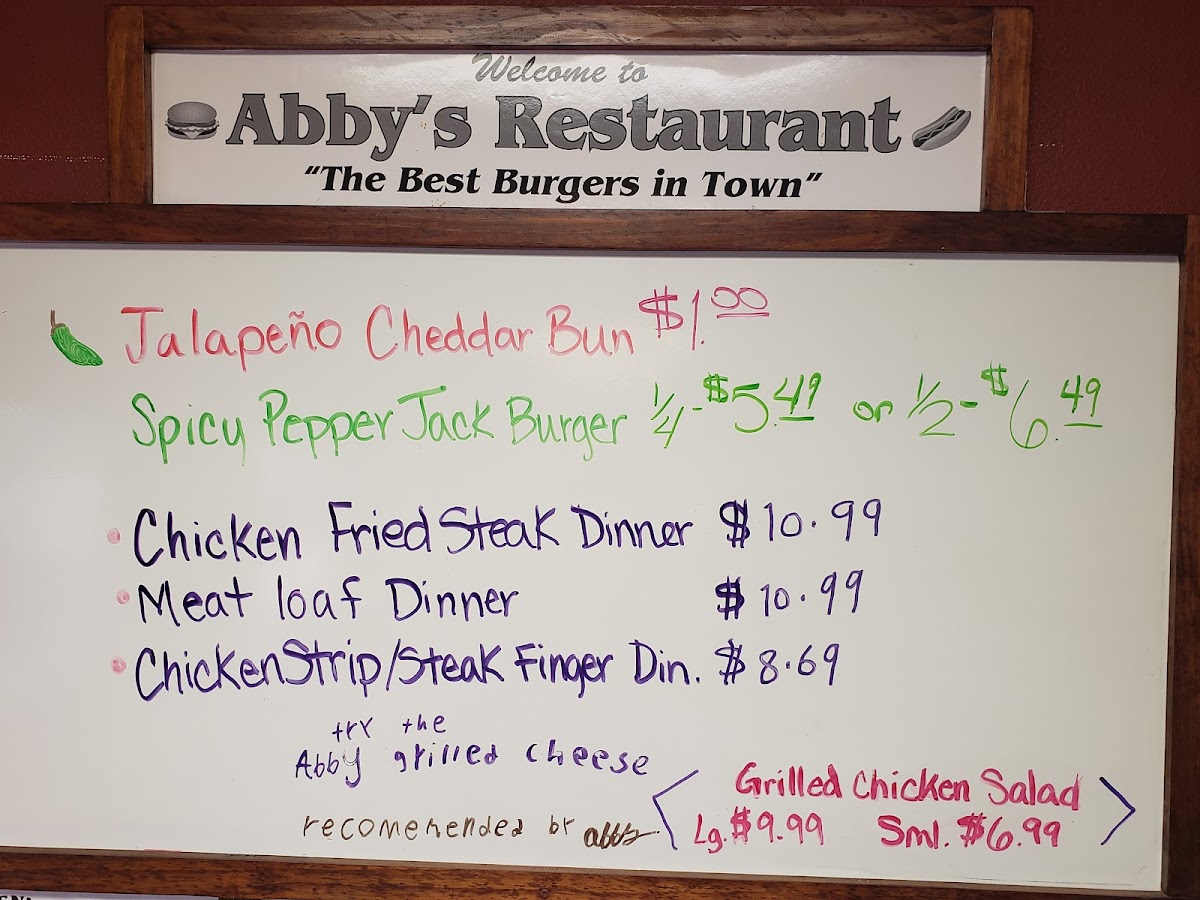 Welcome to
Abby's Restaurant
"The Best Burgers in Town"
Jalapeño Cheddar Bun $1.00
Spicy Pepper Jack Burger 1/4-$5.49 or 1/2-$6.49
• Chicken Fried Steak Dinner $10.99
• Meat loaf Dinner $10.99
• Chicken Strip/Steak Finger Din. $8.69
try the
Abby grilled cheese
recomehended br abby
Grilled Chicken Salad
Lg. $9.99 Sml. $6.99